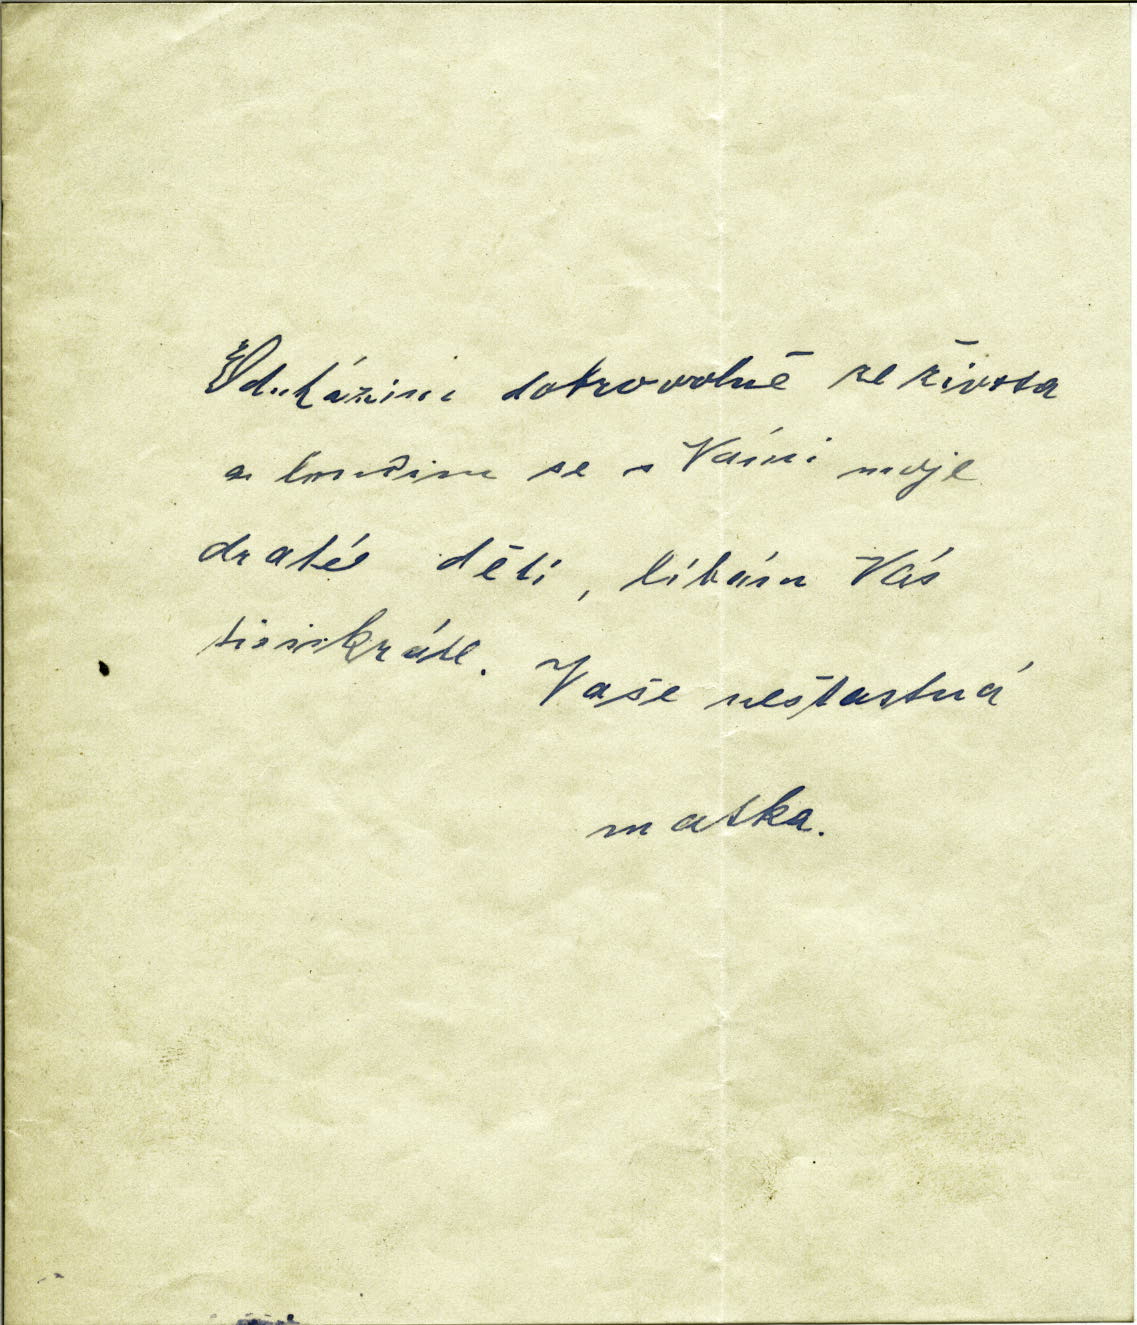 Odcházim dobrovolně ze života
a loučim se s Vámi moje
drahé děti, líbám Vás
tisickráte. Vaše neštastná
matka.